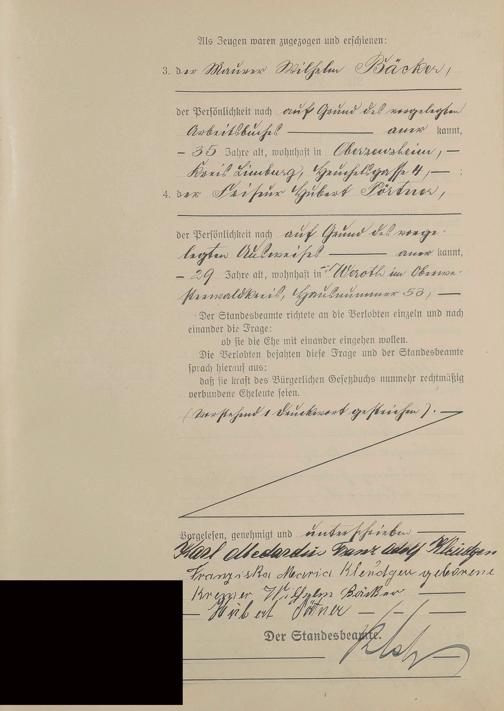 Als Zeugen waren zugezogen und erschienen:
3. der Maurer Wilhelm Bäcker,
der Persönlichkeit nach auf Grund des vorgelegten
Arbeitsbuches — aner kannt,
— 35 Jahre alt, wohnhaft in Oberzeuzheim, —
Kreis Limburg, 4, — ;
4. der Friseur Hubert Pörtner,
der Persönlichkeit nach auf Grund des vorge-
legten Ausweises — aner kannt,
— 29 Jahre alt, wohnhaft in Weroth im Oberwe-
sterwaldkreis, Hausnummer 53, —
Der Standesbeamte richtete an die Verlobten einzeln und nach
einander die Frage:
ob sie die Ehe mit einander eingehen wollen.
Die Verlobten bejahten diese Frage und der Standesbeamte
sprach hierauf aus:
daß sie kraft des Bürgerlichen Gesetzbuchs nunmehr rechtmäßig
verbundene Eheleute seien.
(Vorstehend 1 Druckwort gestrichen). —
Vorgelesen, genehmigt und unterschrieben —
Karl Medardus Franz Adolf
Franziska Maria geborene
Kremer Wilhelm Bäcker —
— Hubert Pörtner — —
Der Standesbeamte.